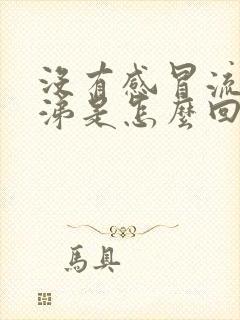 没有感冒流
涕是怎麼回
馬具